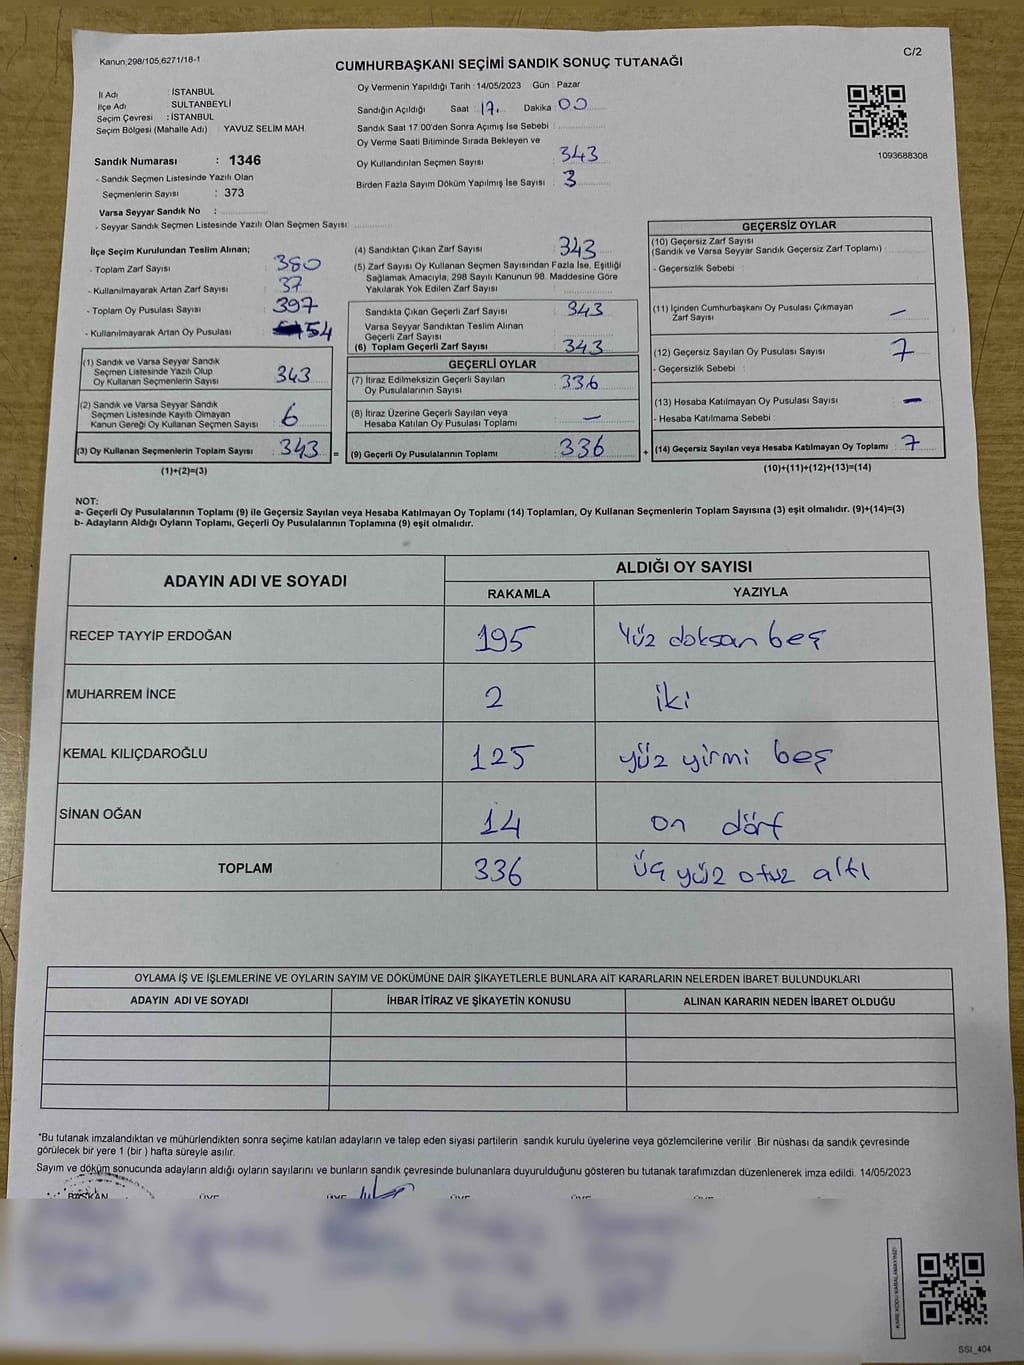 Kanun;298/105,6271/18-1
C/2
CUMHURBAŞKANI SEÇİMİ SANDIK SONUÇ TUTANAĞI
İl Adı : İSTANBUL
İlçe Adı SULTANBEYLİ
Seçim Çevresi : İSTANBUL
Seçim Bölgesi (Mahalle Adı) YAVUZ SELİM MAH.
Sandık Numarası : 1346
- Sandık Seçmen Listesinde Yazılı Olan
Seçmenlerin Sayısı : 373
Varsa Seyyar Sandık No :
- Seyyar Sandık Seçmen Listesinde Yazılı Olan Seçmen Sayısı:
Oy Vermenin Yapıldığı Tarih : 14/05/2023 Gün : Pazar
Sandığın Açıldığı Saat : 17. Dakika : 00
Sandık Saat 17.00'den Sonra Açımış İse Sebebi :
Oy Verme Saati Bitiminde Sırada Bekleyen ve
Oy Kullandırılan Seçmen Sayısı 343
Birden Fazla Sayım Döküm Yapılmış İse Sayısı : 3
1093688308
İlçe Seçim Kurulundan Teslim Alınan;
- Toplam Zarf Sayısı 380
- Kullanılmayarak Artan Zarf Sayısı : 37
- Toplam Oy Pusulası Sayısı 397
- Kullanılmayarak Artan Oy Pusulası 54
(1) Sandık ve Varsa Seyyar Sandık
Seçmen Listesinde Yazılı Olup
Oy Kullanan Seçmenlerin Sayısı 343
(2) Sandık ve Varsa Seyyar Sandık
Seçmen Listesinde Kayıtlı Olmayan
Kanun Gereği Oy Kullanan Seçmen Sayısı : 6
(3) Oy Kullanan Seçmenlerin Toplam Sayısı : 343 =
(1)+(2)=(3)
(4) Sandıktan Çıkan Zarf Sayısı 343
(5) Zarf Sayısı Oy Kullanan Seçmen Sayısından Fazla İse, Eşitliği
Sağlamak Amacıyla, 298 Sayılı Kanunun 98. Maddesine Göre
Yakılarak Yok Edilen Zarf Sayısı
Sandıkta Çıkan Geçerli Zarf Sayısı 343
Varsa Seyyar Sandıktan Teslim Alınan
Geçerli Zarf Sayısı
(6) Toplam Geçerli Zarf Sayısı 343
GEÇERLİ OYLAR
(7) İtiraz Edilmeksizin Geçerli Sayılan
Oy Pusulalarının Sayısı 336
(8) İtiraz Üzerine Geçerli Sayılan veya
Hesaba Katılan Oy Pusulası Toplamı : —
(9) Geçerli Oy Pusulalarının Toplamı : 336 +
GEÇERSİZ OYLAR
(10) Geçersiz Zarf Sayısı
(Sandık ve Varsa Seyyar Sandık Geçersiz Zarf Toplamı)
- Geçersizlik Sebebi :
(11) İçinden Cumhurbaşkanı Oy Pusulası Çıkmayan
Zarf Sayısı —
(12) Geçersiz Sayılan Oy Pusulası Sayısı 7
- Geçersizlik Sebebi :
(13) Hesaba Katılmayan Oy Pusulası Sayısı —
- Hesaba Katılmama Sebebi :
(14) Geçersiz Sayılan veya Hesaba Katılmayan Oy Toplamı : 7
(10)+(11)+(12)+(13)=(14)
NOT:
a- Geçerli Oy Pusulalarının Toplamı (9) ile Geçersiz Sayılan veya Hesaba Katılmayan Oy Toplamı (14) Toplamları, Oy Kullanan Seçmenlerin Toplam Sayısına (3) eşit olmalıdır. (9)+(14)=(3)
b- Adayların Aldığı Oyların Toplamı, Geçerli Oy Pusulalarının Toplamına (9) eşit olmalıdır.
ADAYIN ADI VE SOYADI
ALDIĞI OY SAYISI
RAKAMLA YAZIYLA
RECEP TAYYİP ERDOĞAN 195 Yüz doksan beş
MUHARREM İNCE 2 iki
KEMAL KILIÇDAROĞLU 125 yüz yirmi beş
SİNAN OĞAN 14 on dört
TOPLAM 336 üç yüz otuz altı
OYLAMA İŞ VE İŞLEMLERİNE VE OYLARIN SAYIM VE DÖKÜMÜNE DAİR ŞİKAYETLERLE BUNLARA AİT KARARLARIN NELERDEN İBARET BULUNDUKLARI
ADAYIN ADI VE SOYADI İHBAR İTİRAZ VE ŞİKAYETİN KONUSU ALINAN KARARIN NEDEN İBARET OLDUĞU
*Bu tutanak imzalandıktan ve mühürlendikten sonra seçime katılan adayların ve talep eden siyasi partilerin sandık kurulu üyelerine veya gözlemcilerine verilir .Bir nüshası da sandık çevresinde
görülecek bir yere 1 (bir ) hafta süreyle asılır.
Sayım ve döküm sonucunda adayların aldığı oyların sayılarını ve bunların sandık çevresinde bulunanlara duyurulduğunu gösteren bu tutanak tarafımızdan düzenlenerek imza edildi. 14/05/2023
BAŞKAN ÜYE ÜYE ÜYE ÜYE ÜYE
KARE KODU KARALAMAYINIZ!
SSI_404